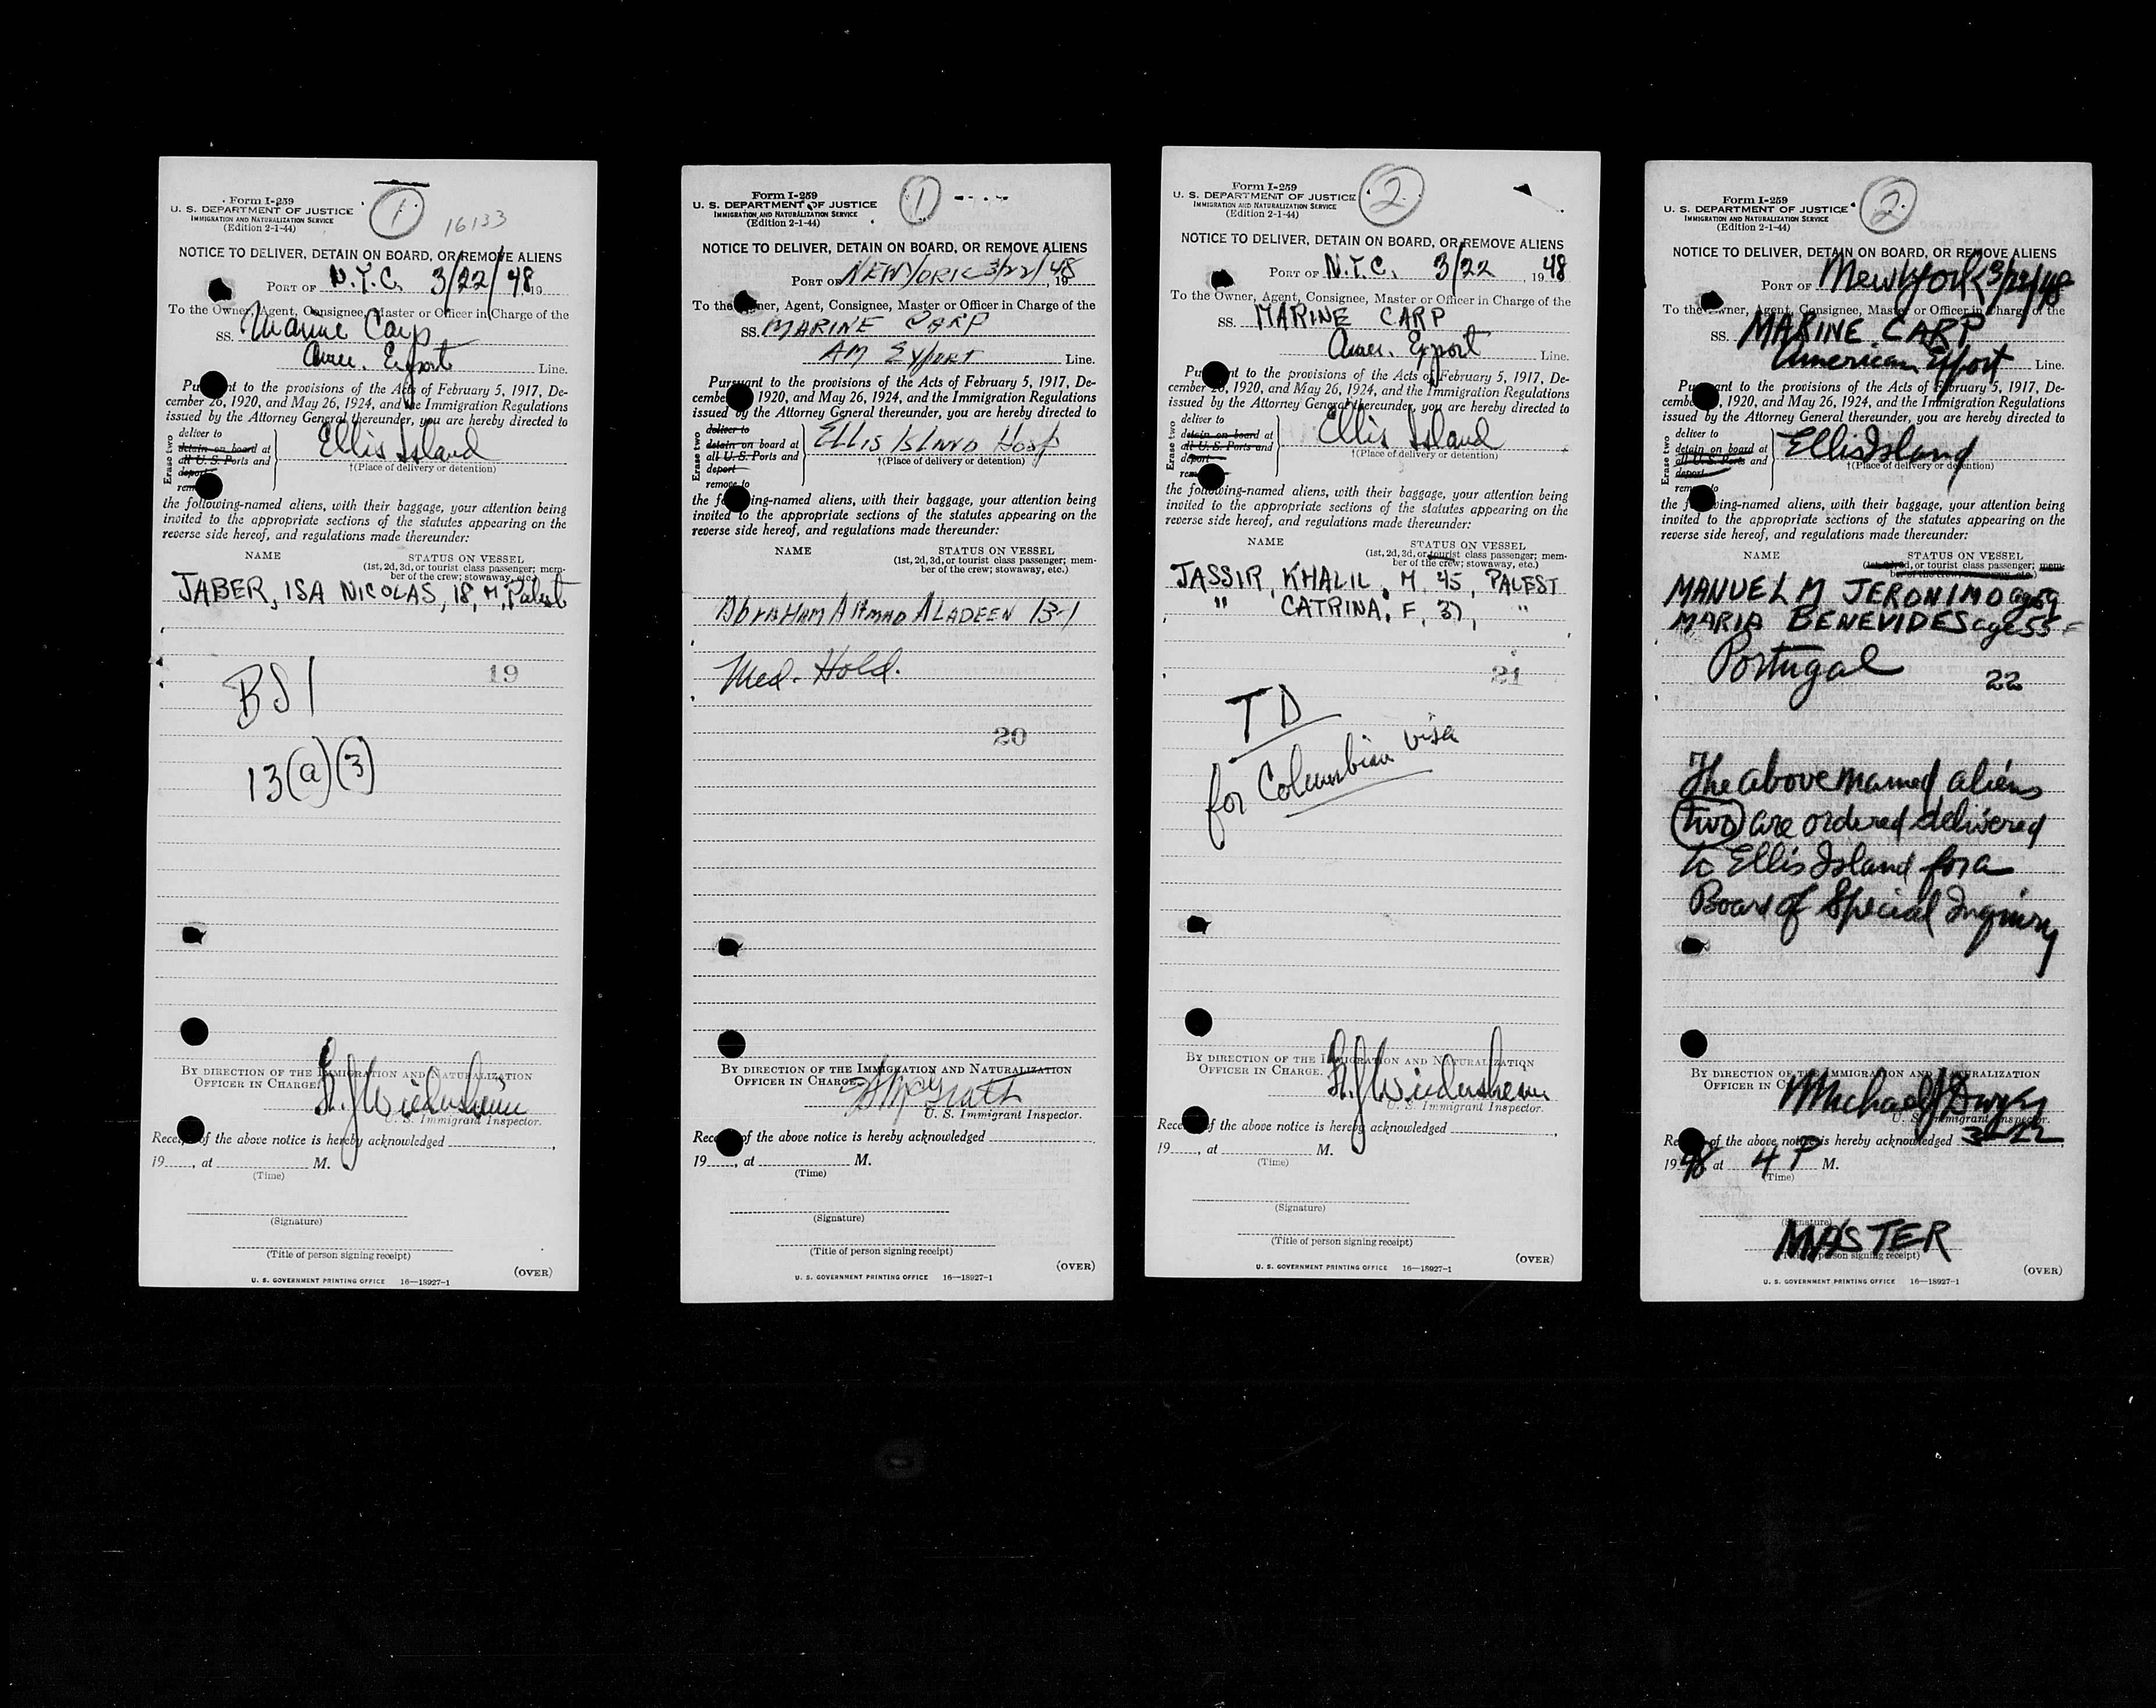 1
16133
Form I-259
U. S. DEPARTMENT OF JUSTICE
IMMIGRATION AND NATURALIZATION SERVICE
(Edition 2-1-44)
NOTICE TO DELIVER, DETAIN ON BOARD, OR REMOVE ALIENS
PORT OF N.Y.C. 3/22/48 19
To the Owner, Agent, Consignee, Master or Officer in Charge of the
SS. Marine Carp
Amer. Export Line.
Pursuant to the provisions of the Acts of February 5, 1917, De-
cember 26, 1920, and May 26, 1924, and the Immigration Regulations
issued by the Attorney General thereunder, you are hereby directed to
Erase two
deliver to
detain on board at
all U. S. Ports and
deport
Ellis Island
†(Place of delivery or detention)
the following-named aliens, with their baggage, your attention being
invited to the appropriate sections of the statutes appearing on the
reverse side hereof, and regulations made thereunder:
NAME STATUS ON VESSEL
(1st, 2d, 3d, or tourist class passenger; mem-
ber of the crew; stowaway, etc.)
JABER, ISA NICOLAS, 18, M, Palest
19
BSI
13(a)(3)
BY DIRECTION OF THE IMMIGRATION AND NATURALIZATION
OFFICER IN CHARGE.
U. S. Immigrant Inspector.
Receipt of the above notice is hereby acknowledged
19 , at M.
(Time)
(Signature)
(Title of person signing receipt)
(OVER)
U. S. GOVERNMENT PRINTING OFFICE 16—18927-1
1
Form I-259
U. S. DEPARTMENT OF JUSTICE
IMMIGRATION AND NATURALIZATION SERVICE
(Edition 2-1-44)
NOTICE TO DELIVER, DETAIN ON BOARD, OR REMOVE ALIENS
PORT OF NEW YORK 3/22/48, 19
To the Owner, Agent, Consignee, Master or Officer in Charge of the
SS. MARINE CARP
AM Export Line.
Pursuant to the provisions of the Acts of February 5, 1917, De-
cember 1920, and May 26, 1924, and the Immigration Regulations
issued by the Attorney General thereunder, you are hereby directed to
Erase two
deliver to
detain on board at
all U. S. Ports and
deport
remove to
ELLIS ISLAND HOSP
†(Place of delivery or detention)
the following-named aliens, with their baggage, your attention being
invited to the appropriate sections of the statutes appearing on the
reverse side hereof, and regulations made thereunder:
NAME STATUS ON VESSEL
(1st, 2d, 3d, or tourist class passenger; mem-
ber of the crew; stowaway, etc.)
ABRAHAM AHMAD ALADEEN 13-1
Med. Hold.
20
BY DIRECTION OF THE IMMIGRATION AND NATURALIZATION
OFFICER IN CHARGE.
McGrath
U. S. Immigrant Inspector.
Receipt of the above notice is hereby acknowledged
19 , at M.
(Time)
(Signature)
(Title of person signing receipt)
(OVER)
U. S. GOVERNMENT PRINTING OFFICE 16—18927-1
2
Form I-259
U. S. DEPARTMENT OF JUSTICE
IMMIGRATION AND NATURALIZATION SERVICE
(Edition 2-1-44)
NOTICE TO DELIVER, DETAIN ON BOARD, OR REMOVE ALIENS
PORT OF N.Y.C. 3/22, 1948
To the Owner, Agent, Consignee, Master or Officer in Charge of the
SS. MARINE CARP
Amer. Export Line.
Pursuant to the provisions of the Acts of February 5, 1917, De-
cember 26, 1920, and May 26, 1924, and the Immigration Regulations
issued by the Attorney General thereunder, you are hereby directed to
Erase two
deliver to
detain on board at
all U. S. Ports and
deport
Ellis Island
†(Place of delivery or detention)
the following-named aliens, with their baggage, your attention being
invited to the appropriate sections of the statutes appearing on the
reverse side hereof, and regulations made thereunder:
NAME STATUS ON VESSEL
(1st, 2d, 3d, or tourist class passenger; mem-
ber of the crew; stowaway, etc.)
JASSIR, KHALIL, M, 45, PALEST
" CATRINA, F, 37, "
21
TD
for Columbian visa
BY DIRECTION OF THE IMMIGRATION AND NATURALIZATION
OFFICER IN CHARGE.
U. S. Immigrant Inspector.
Receipt of the above notice is hereby acknowledged
19 , at M.
(Time)
(Signature)
(Title of person signing receipt)
(OVER)
U. S. GOVERNMENT PRINTING OFFICE 16—18927-1
2
Form I-259
U. S. DEPARTMENT OF JUSTICE
IMMIGRATION AND NATURALIZATION SERVICE
(Edition 2-1-44)
NOTICE TO DELIVER, DETAIN ON BOARD, OR REMOVE ALIENS
PORT OF New York 3/22/48
To the Owner, Agent, Consignee, Master or Officer in Charge of the
SS. MARINE CARP
American Export Line.
Pursuant to the provisions of the Acts of February 5, 1917, De-
cember , 1920, and May 26, 1924, and the Immigration Regulations
issued by the Attorney General thereunder, you are hereby directed to
Erase two
deliver to
detain on board at
all U. S. Ports and
deport
remove to
Ellis Island
†(Place of delivery or detention)
the following-named aliens, with their baggage, your attention being
invited to the appropriate sections of the statutes appearing on the
reverse side hereof, and regulations made thereunder:
NAME STATUS ON VESSEL
(1st, 2d, 3d, or tourist class passenger; mem-
ber of the crew; stowaway, etc.)
MANUEL M JERONIMO age 59
MARIA BENEVIDES age 55 F
Portugal
22
The above named aliens
two are ordered delivered
to Ellis Island for a
Board of Special Inquiry
BY DIRECTION OF THE IMMIGRATION AND NATURALIZATION
OFFICER IN CHARGE.
Michael J
U. S. Immigrant Inspector.
Receipt of the above notice is hereby acknowledged 3-22,
1948 at 4 P M.
(Time)
(Signature)
MASTER
(Title of person signing receipt)
(OVER)
U. S. GOVERNMENT PRINTING OFFICE 16—18927-1